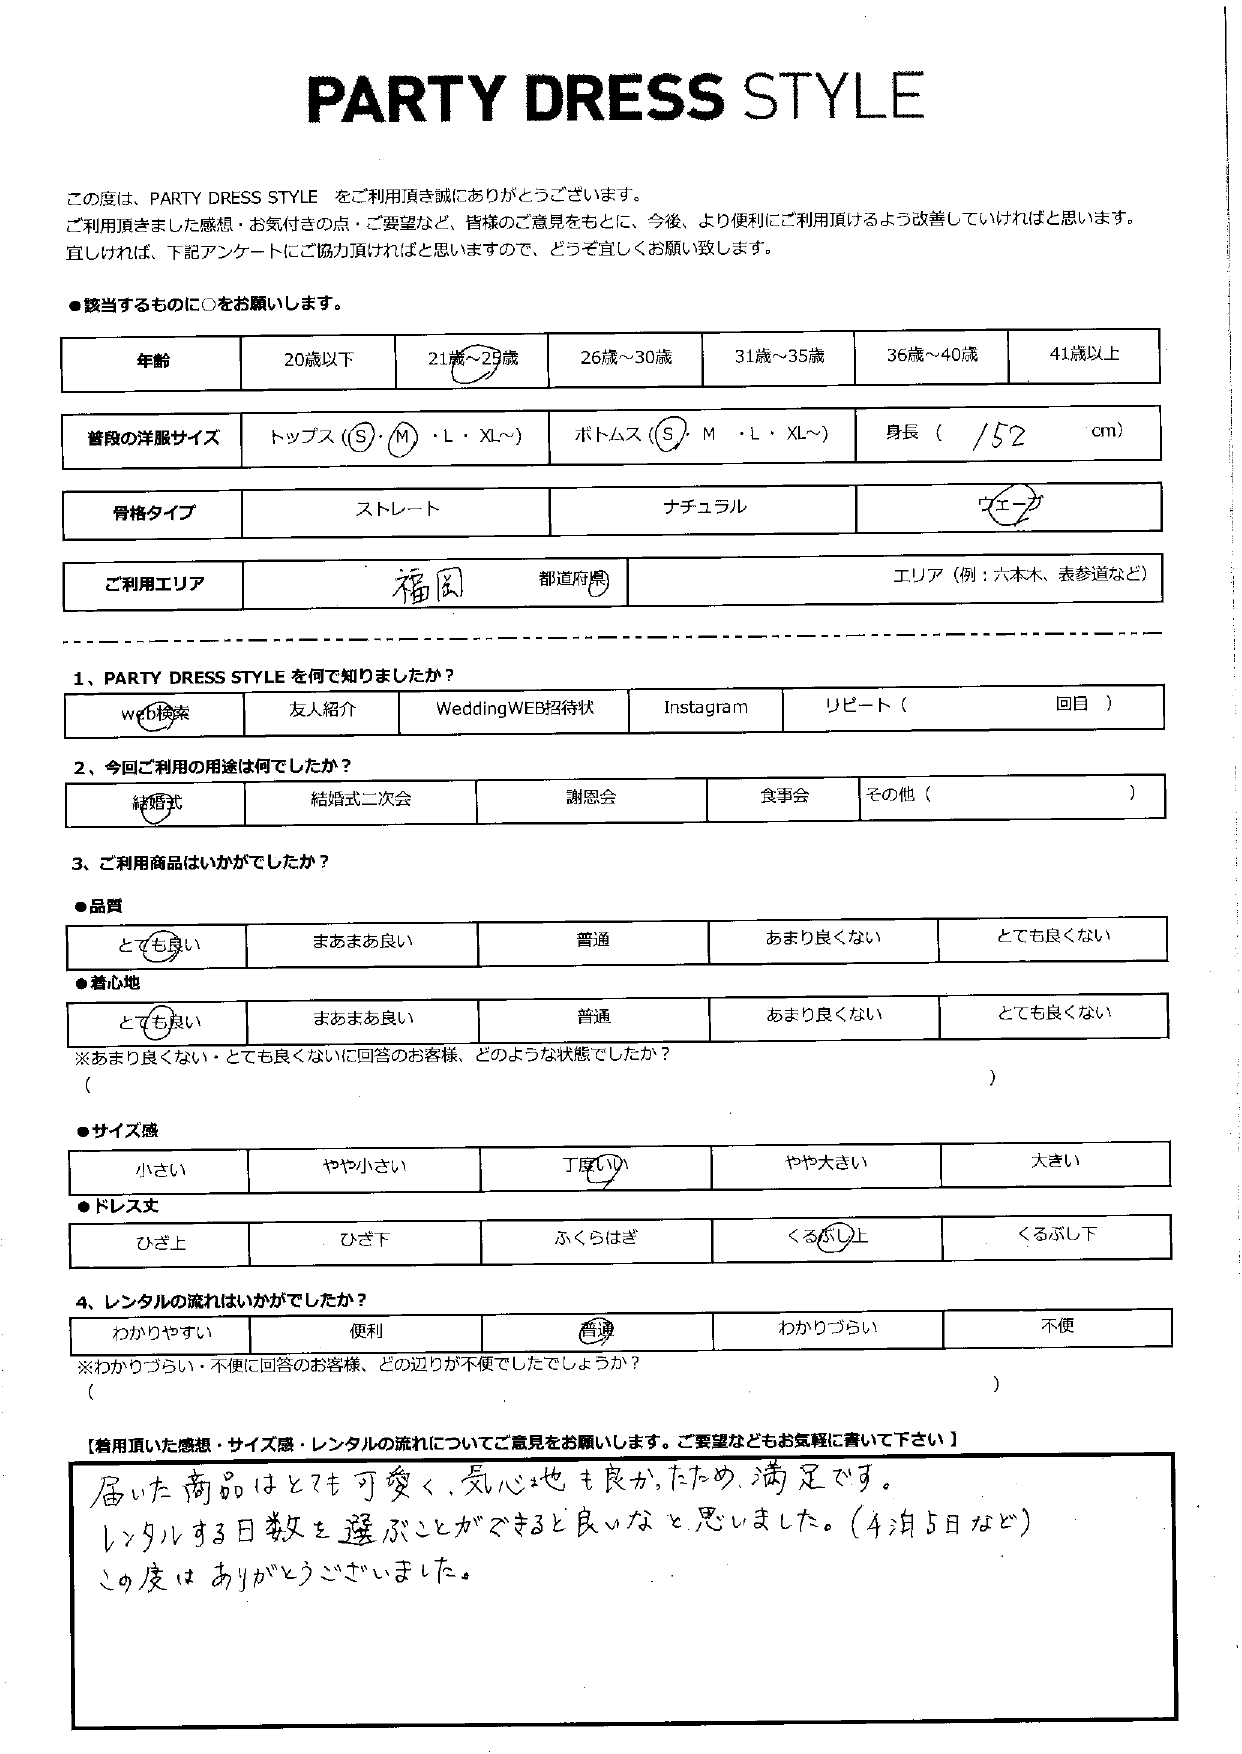 PARTY DRESS STYLE
この度は、PARTY DRESS STYLE をご利用頂き誠にありがとうございます。
ご利用頂きました感想・お気付きの点・ご要望など、皆様のご意見をもとに、今後、より便利にご利用頂けるよう改善していければと思います。
宜しければ、下記アンケートにご協力頂ければと思いますので、どうぞ宜しくお願い致します。
●該当するものに○をお願いします。
年齢 20歳以下 21歳～25歳 26歳～30歳 31歳～35歳 36歳～40歳 41歳以上
普段の洋服サイズ トップス (S・M ・L ・ XL～) ボトムス (S・ M ・L ・ XL～) 身長 ( 152 cm)
骨格タイプ ストレート ナチュラル ウェーブ
ご利用エリア 福岡 都道府県 エリア（例：六本木、表参道など）
1、PARTY DRESS STYLE を何で知りましたか？
web検索 友人紹介 WeddingWEB招待状 Instagram リピート（ 回目 ）
2、今回ご利用の用途は何でしたか？
結婚式 結婚式二次会 謝恩会 食事会 その他（ ）
3、ご利用商品はいかがでしたか？
●品質
とても良い まあまあ良い 普通 あまり良くない とても良くない
●着心地
とても良い まあまあ良い 普通 あまり良くない とても良くない
※あまり良くない・とても良くないに回答のお客様、どのような状態でしたか？
( )
●サイズ感
小さい やや小さい 丁度いい やや大きい 大きい
●ドレス丈
ひざ上 ひざ下 ふくらはぎ くるぶし上 くるぶし下
4、レンタルの流れはいかがでしたか？
わかりやすい 便利 普通 わかりづらい 不便
※わかりづらい・不便に回答のお客様、どの辺りが不便でしたでしょうか？
( )
【着用頂いた感想・サイズ感・レンタルの流れについてご意見をお願いします。ご要望などもお気軽に書いて下さい 】
届いた商品はとても可愛く、気心地も良かったため、満足です。
レンタルする日数を選ぶことができると良いなと思いました。(4泊5日など)
この度はありがとうございました。